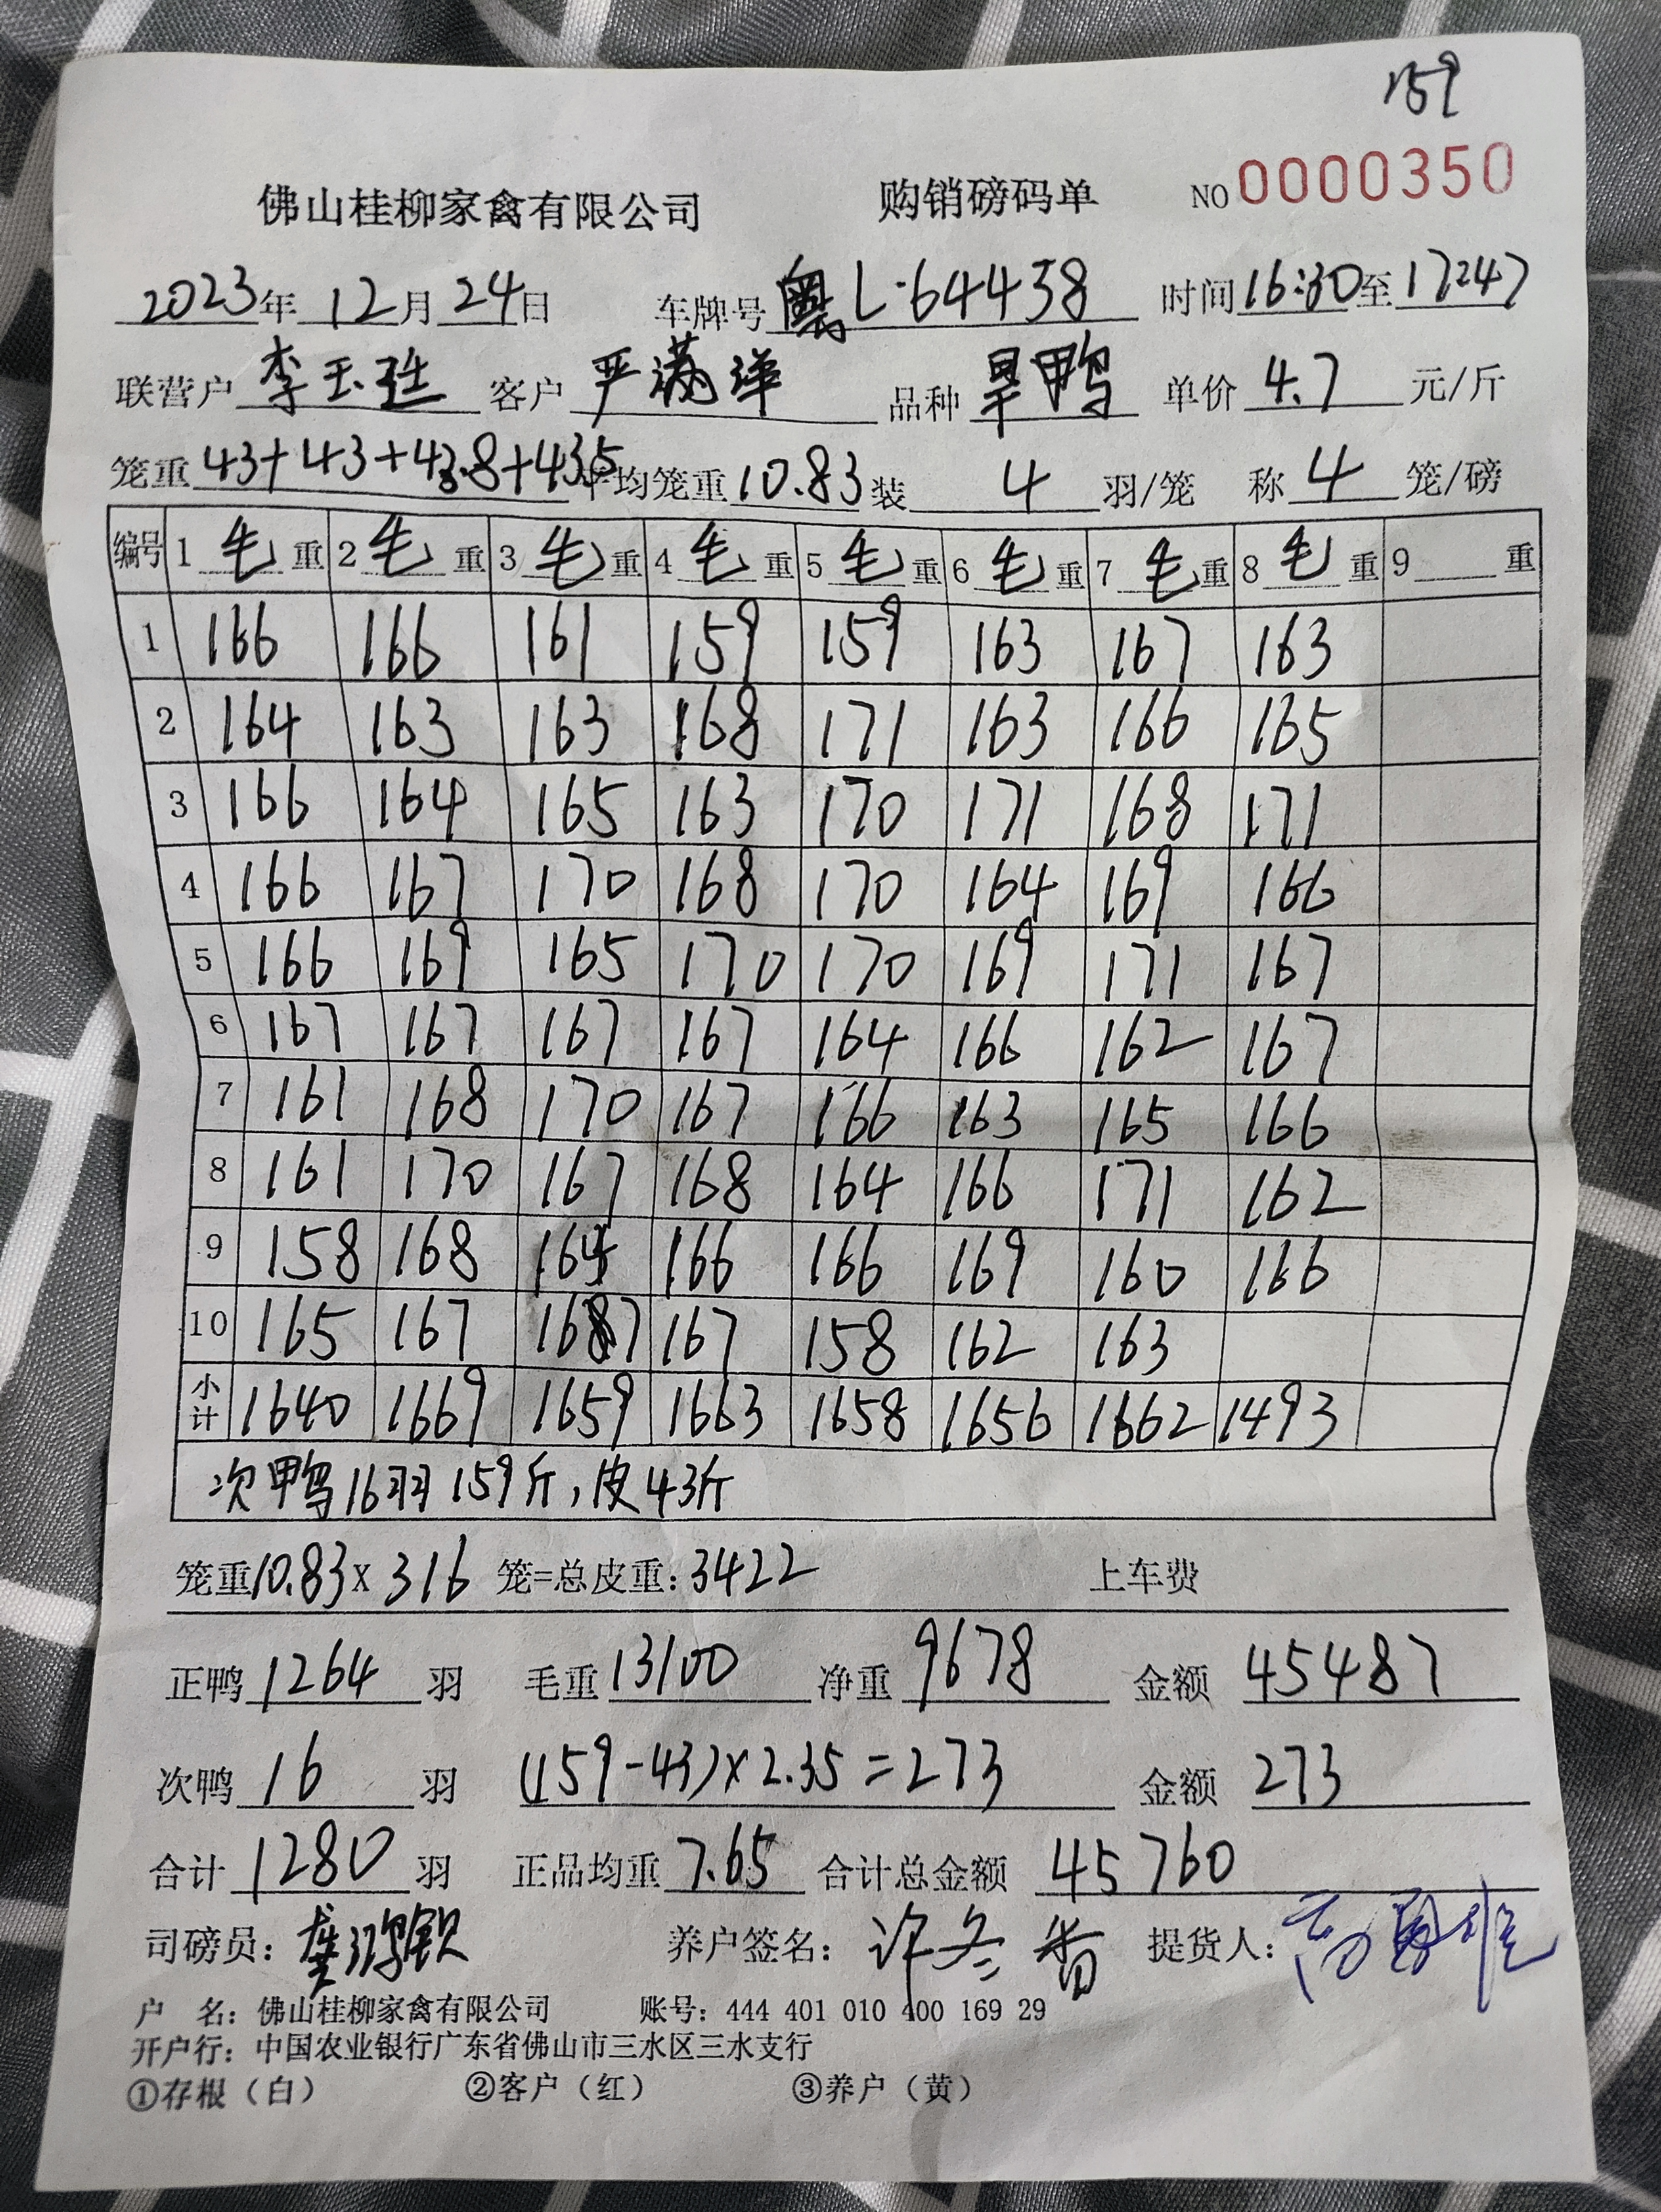 159
佛山桂柳家禽有限公司 购销磅码单 NO 0000350
2023年 12月 24日 车牌号 粤L·64438 时间 16:30 至 17:47
联营户 李玉 客户 严满洋 品种 旱鸭 单价 4.7 元/斤
笼重 43+43+43.8+43.5 平均笼重 10.83 装 4 羽/笼 称 4 笼/磅
编号 1 毛 重 2 毛 重 3 毛 重 4 毛 重 5 毛 重 6 毛 重 7 毛 重 8 毛 重 9 重
1 166 166 161 159 159 163 167 163
2 164 163 163 168 171 163 166 165
3 166 164 165 163 170 171 168 171
4 166 167 170 168 170 164 169 166
5 166 169 165 170 170 169 171 167
6 167 167 167 167 164 166 162 167
7 161 168 170 167 166 163 165 166
8 161 170 167 168 164 166 171 162
9 158 168 164 166 166 169 160 166
10 165 167 167 167 158 162 163
小计 1640 1669 1659 1663 1658 1656 1662 1493
次鸭16羽159斤,皮43斤
笼重 10.83 x 316 笼=总皮重: 3422 上车费
正鸭 1264 羽 毛重 13100 净重 9678 金额 45487
次鸭 16 羽 (159-43)x2.35=273 金额 273
合计 1280 羽 正品均重 7.65 合计总金额 45760
司磅员: 养户签名: 许冬香 提货人:
户 名: 佛山桂柳家禽有限公司 账号: 444 401 010 400 169 29
开户行: 中国农业银行广东省佛山市三水区三水支行
①存根(白) ②客户(红) ③养户(黄)